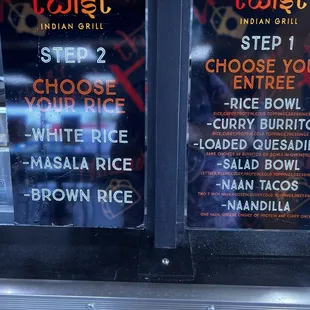 twist
INDIAN GRILL
STEP 2
CHOOSE
YOUR RICE
-WHITE RICE
-MASALA RICE
-BROWN RICE
twist
INDIAN GRILL
STEP 1
CHOOSE YOU
ENTREE
-RICE BOWL
-CURRY BURRITO
-LOADED QUESADI
-SALAD BOWL
-NAAN TACOS
-NAANDILLA